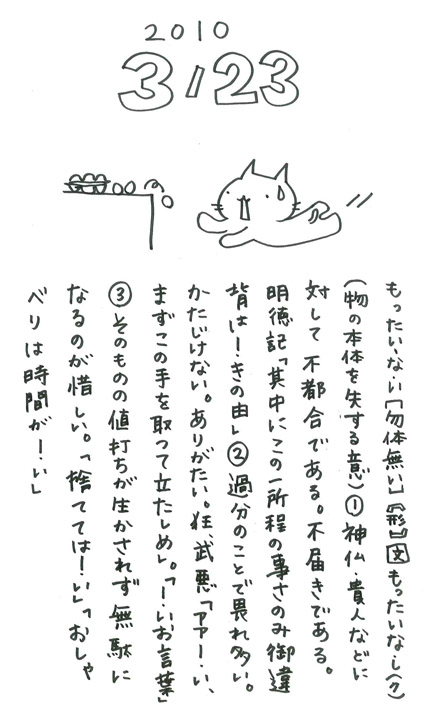 2010
3/23
もったいな・い【勿体無い】《形》文もったいな・し(ク)
(物の本体を失する意)①神仏・貴人などに
対して不都合である。不届きである。
明徳記「其中にこの一所程の事さのみ御違
背は―・きの由」②過分のことで畏れ多い。
かたじけない。ありがたい。狂、武悪「アア―・い、
まずこの手を取つて立たしめ」。「―・いお言葉」
③そのものの値打ちが生かされず無駄に
なるのが惜しい。「捨てては―・い」「おしゃ
べりは時間が―・い」